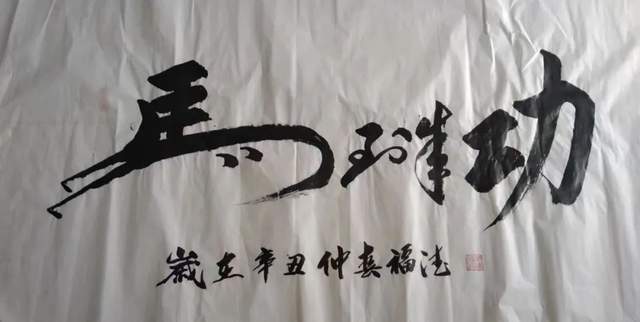 馬到成功
歲在辛丑仲春福